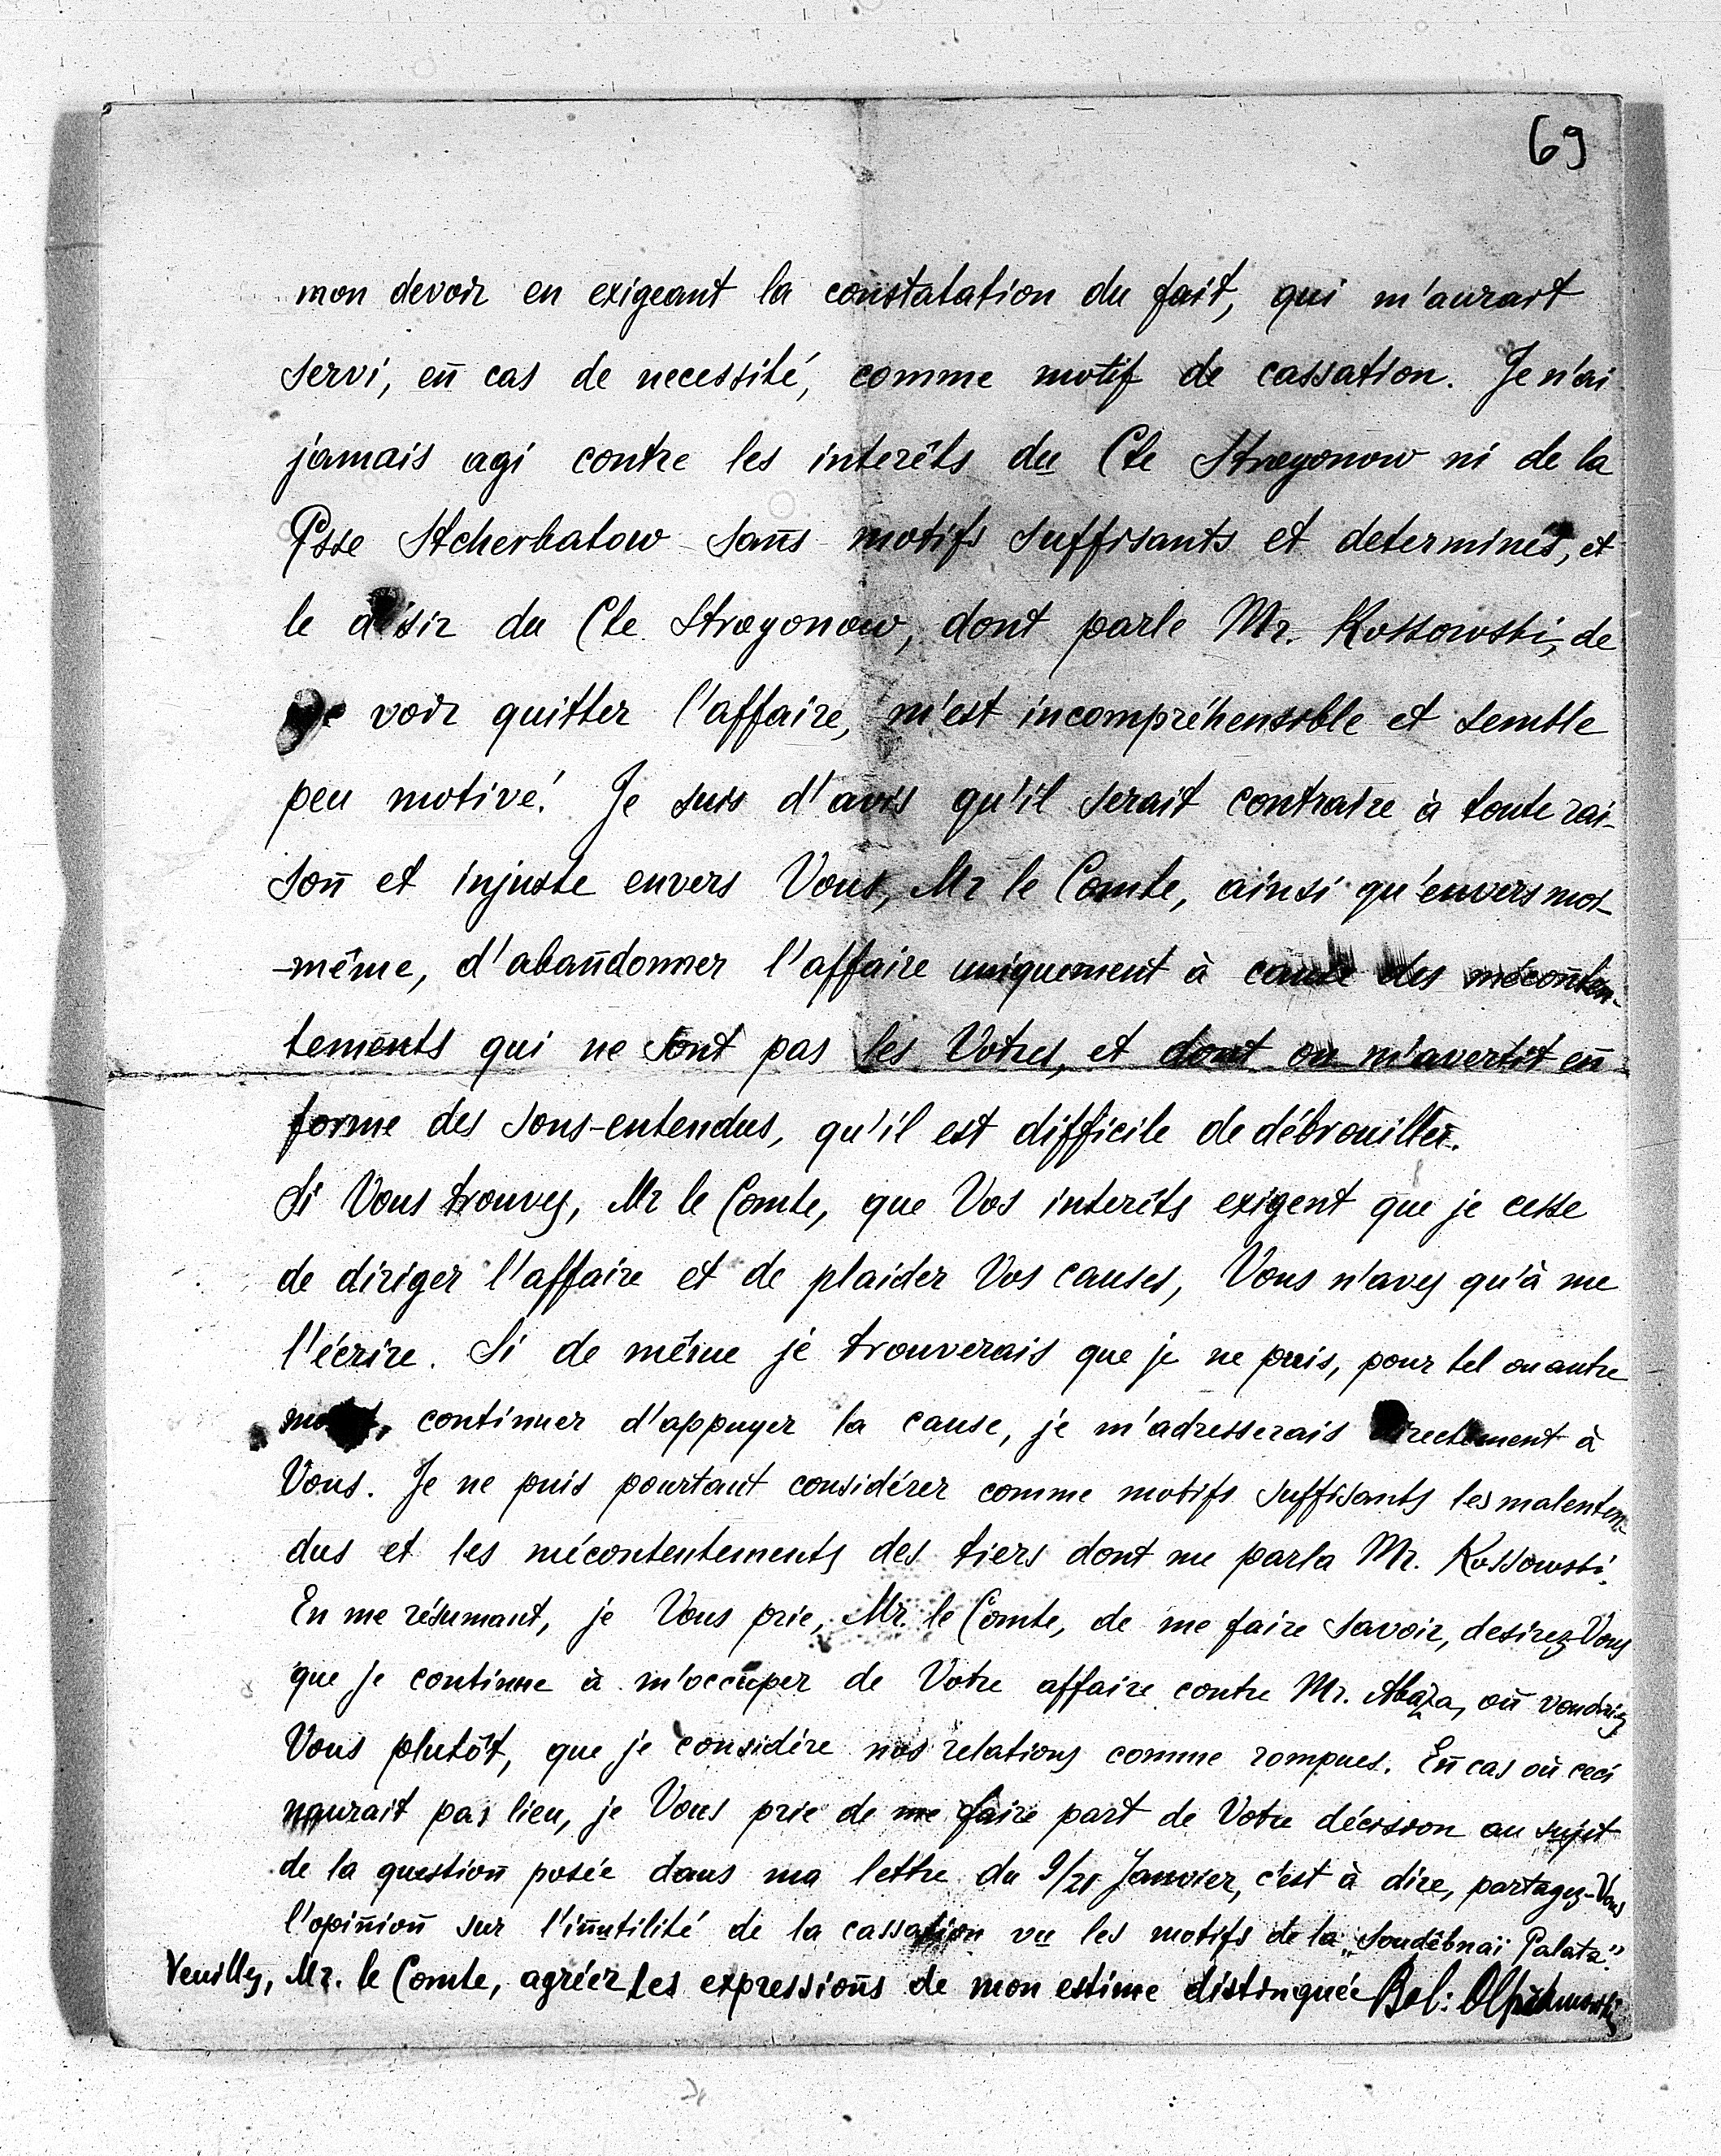 69
mon devoir en exigeant la constatation du fait, qui m'aurait
servi, en cas de necessité, comme motif de cassation. Je n'ai
jamais agi contre les interêts du Cte Strogonow ni de la
Psse Stcherbatow sans motifs suffisants et determinés, et
le désir du Cte Strogonow, dont parle Mr. Kossowski, de
me voir quitter l'affaire, m'est incompréhensible et semble
peu motivé! Je suis d'avis qu'il serait contraire à toute rai-
son et injuste envers Vous, Mr le Comte, ainsi qu'envers moi-
-même, d'abandonner l'affaire uniquement à cause des méconten-
tements qui ne sont pas les Votres, et dont on m'avertit en
forme des sous-entendus, qu'il est difficile de débrouiller.
Si Vous trouvez, Mr le Comte, que Vos interêts exigent que je cesse
de diriger l'affaire et de plaider Vos causes, Vous n'avez qu'à me
l'écrire. Si de même je trouverais que je ne puis, pour tel ou autre
motif, continuer d'appuyer la cause, je m'adresserais directement à
Vous. Je ne puis pourtant considérer comme motifs suffisants les malenten-
dus et les mécontentements des tiers dont me parla Mr. Kossowski.
En me résumant, je Vous prie, Mr. le Comte, de me faire savoir, desirez-Vous
que je continue à m'occuper de Votre affaire contre Mr. Abaza, ou voudriez
Vous plutôt, que je considére nos relations comme rompues. En cas où ceci
n'aurait pas lieu, je Vous prie de me faire part de Votre décision au sujet
de la question posée dans ma lettre du 9/21 Janvier, c'est à dire, partagez-Vous
l'opinion sur l'inutilité de la cassation vu les motifs de la „Soudêbnaï Palata."
Veuillez, Mr. le Comte, agréer les expressions de mon estime distinguée Bol: